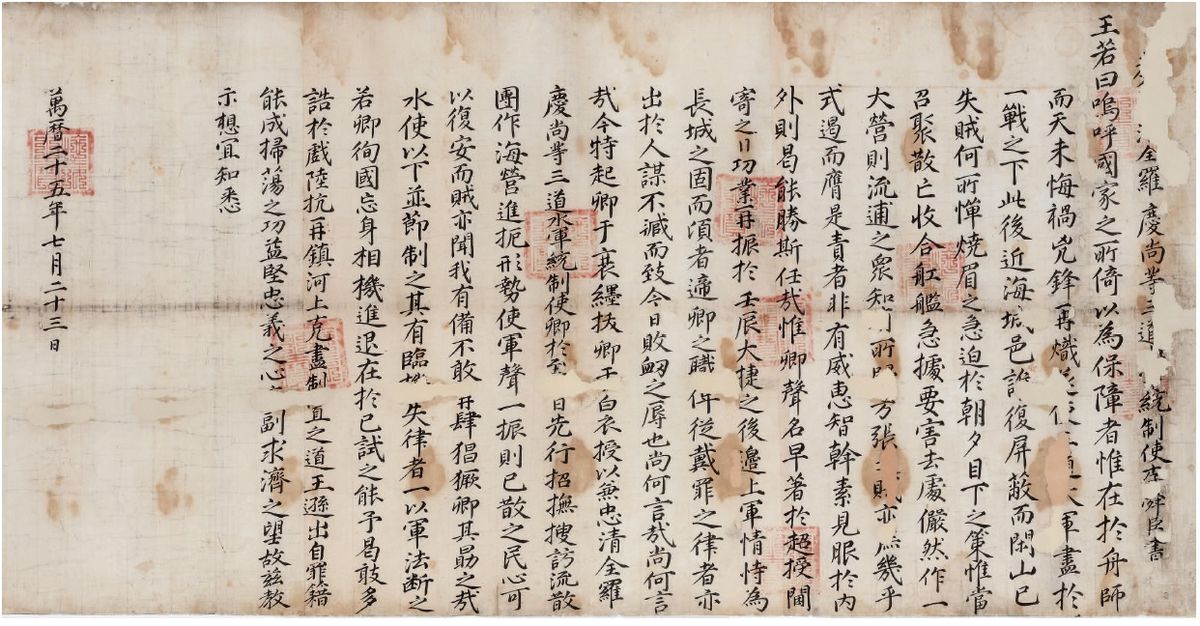 全羅慶尚等三道統制使李舜臣書
王若曰嗚呼國家之所倚以為保障者惟在於舟師
而天未悔禍兇鋒再熾軍盡於
一戰之下此後近海城邑誰復屏蔽而閑山已
失賊何所憚燒眉之急迫於朝夕目下之策惟當
召聚散亡收合舡艦急據要害去處儼然作一
大營則流逋之衆知所方張賊亦幾乎
式遏而膺是責者非有威惠智幹素見服於內
外則曷能勝斯任哉惟卿聲名早著於超授閫
寄之日功業再振於壬辰大捷之後邊上軍情恃為
長城之固而頃者遞卿之職俾從戴罪之律者亦
出於人謀不臧而致今日敗衄之辱也尚何言哉尚何言
哉今特起卿于衰絰拔卿于白衣授以兼忠清全羅
慶尚等三道水軍統制使卿於至日先行招撫搜訪流散
團作海營進扼形勢使軍聲一振則已散之民心可
以復安而賊亦聞我有備不敢再肆猖獗卿其勗之哉
水使以下並節制之其有臨機失律者一以軍法斷之
若卿徇國忘身相機進退在於已試之能予曷敢多
誥於戲陸抗再鎮河上克盡制置之道王遜出自罪籍
能成掃蕩之功益堅忠義之心副求濟之望故玆教
示想宜知悉
萬曆二十五年七月二十三日